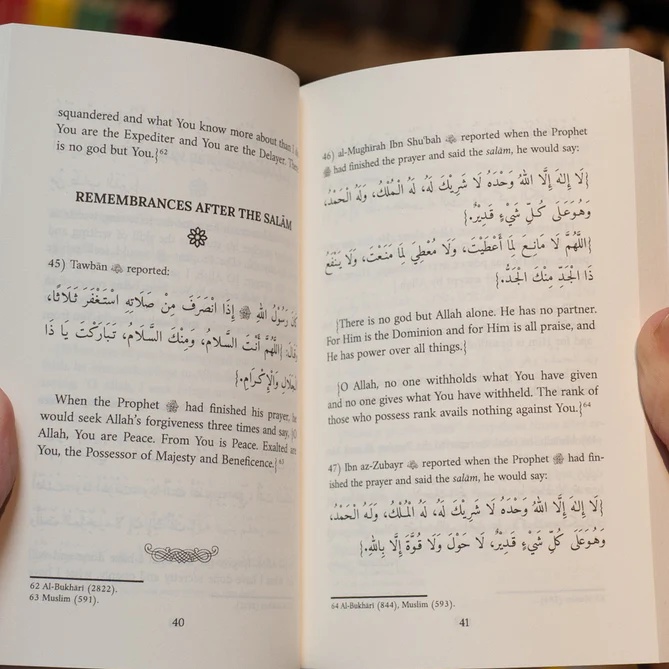 squandered and what You know more about than I do.
You are the Expediter and You are the Delayer. There
is no god but You.}⁶²
REMEMBRANCES AFTER THE SALĀM
45) Tawbān ﷺ reported:
كَانَ رَسُوْلُ اللهِ ﷺ إِذَا انْصَرَفَ مِنْ صَلَاتِهِ اسْتَغْفَرَ ثَلَاثًا،
وَقَالَ: {اللَّهُمَّ أَنْتَ السَّلَامُ، وَمِنْكَ السَّلَامُ، تَبَارَكْتَ يَا ذَا
الْجَلَالِ وَالْإِكْرَامِ.}
When the Prophet ﷺ had finished his prayer, he
would seek Allah's forgiveness three times and say, {O
Allah, You are Peace. From You is Peace. Exalted are
You, the Possessor of Majesty and Beneficence.}⁶³
62 Al-Bukhārī (2822).
63 Muslim (591).
40
46) al-Mughīrah Ibn Shu'bah reported when the Prophet
ﷺ had finished the prayer and said the salām, he would say:
{لَا إِلٰهَ إِلَّا اللهُ وَحْدَهُ لَا شَرِيْكَ لَهُ، لَهُ الْمُلْكُ، وَلَهُ الْحَمْدُ،
وَهُوَ عَلَى كُلِّ شَيْءٍ قَدِيْرٌ.}
{اللَّهُمَّ لَا مَانِعَ لِمَا أَعْطَيْتَ، وَلَا مُعْطِيَ لِمَا مَنَعْتَ، وَلَا يَنْفَعُ
ذَا الْجَدِّ مِنْكَ الْجَدُّ.}
{There is no god but Allah alone. He has no partner.
For Him is the Dominion and for Him is all praise, and
He has power over all things.{
{O Allah, no one withholds what You have given
and no one gives what You have withheld. The rank of
those who possess rank avails nothing against You.}⁶⁴
47) Ibn az-Zubayr reported when the Prophet ﷺ had fin-
ished the prayer and said the salām, he would say:
{لَا إِلٰهَ إِلَّا اللهُ وَحْدَهُ لَا شَرِيْكَ لَهُ، لَهُ الْمُلْكُ، وَلَهُ الْحَمْدُ،
وَهُوَ عَلَى كُلِّ شَيْءٍ قَدِيْرٌ، لَا حَوْلَ وَلَا قُوَّةَ إِلَّا بِاللهِ.}
64 Al-Bukhārī (844), Muslim (593).
41